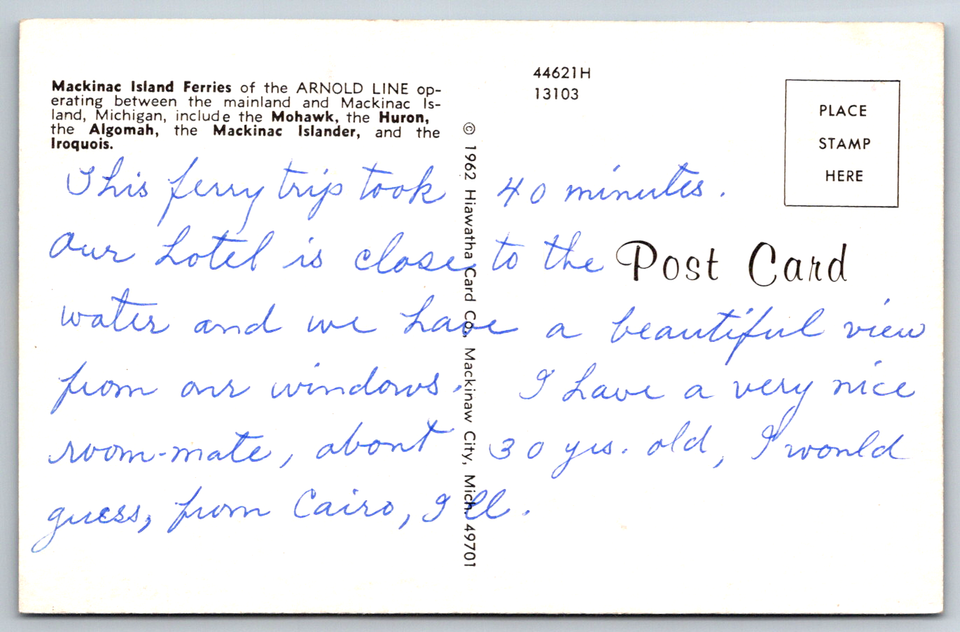 Mackinac Island Ferries of the ARNOLD LINE op-
erating between the mainland and Mackinac Is-
land, Michigan, include the Mohawk, the Huron,
the Algomah, the Mackinac Islander, and the
Iroquois.
44621H
13103
PLACE
STAMP
HERE
© 1962 Hiawatha Card Co., Mackinaw City, Mich. 49701
Post Card
This ferry trip took 40 minutes.
Our hotel is close to the
water and we have a beautiful view
from our windows. I have a very nice
room-mate, about 30 yrs. old, I would
guess, from Cairo, Ill.